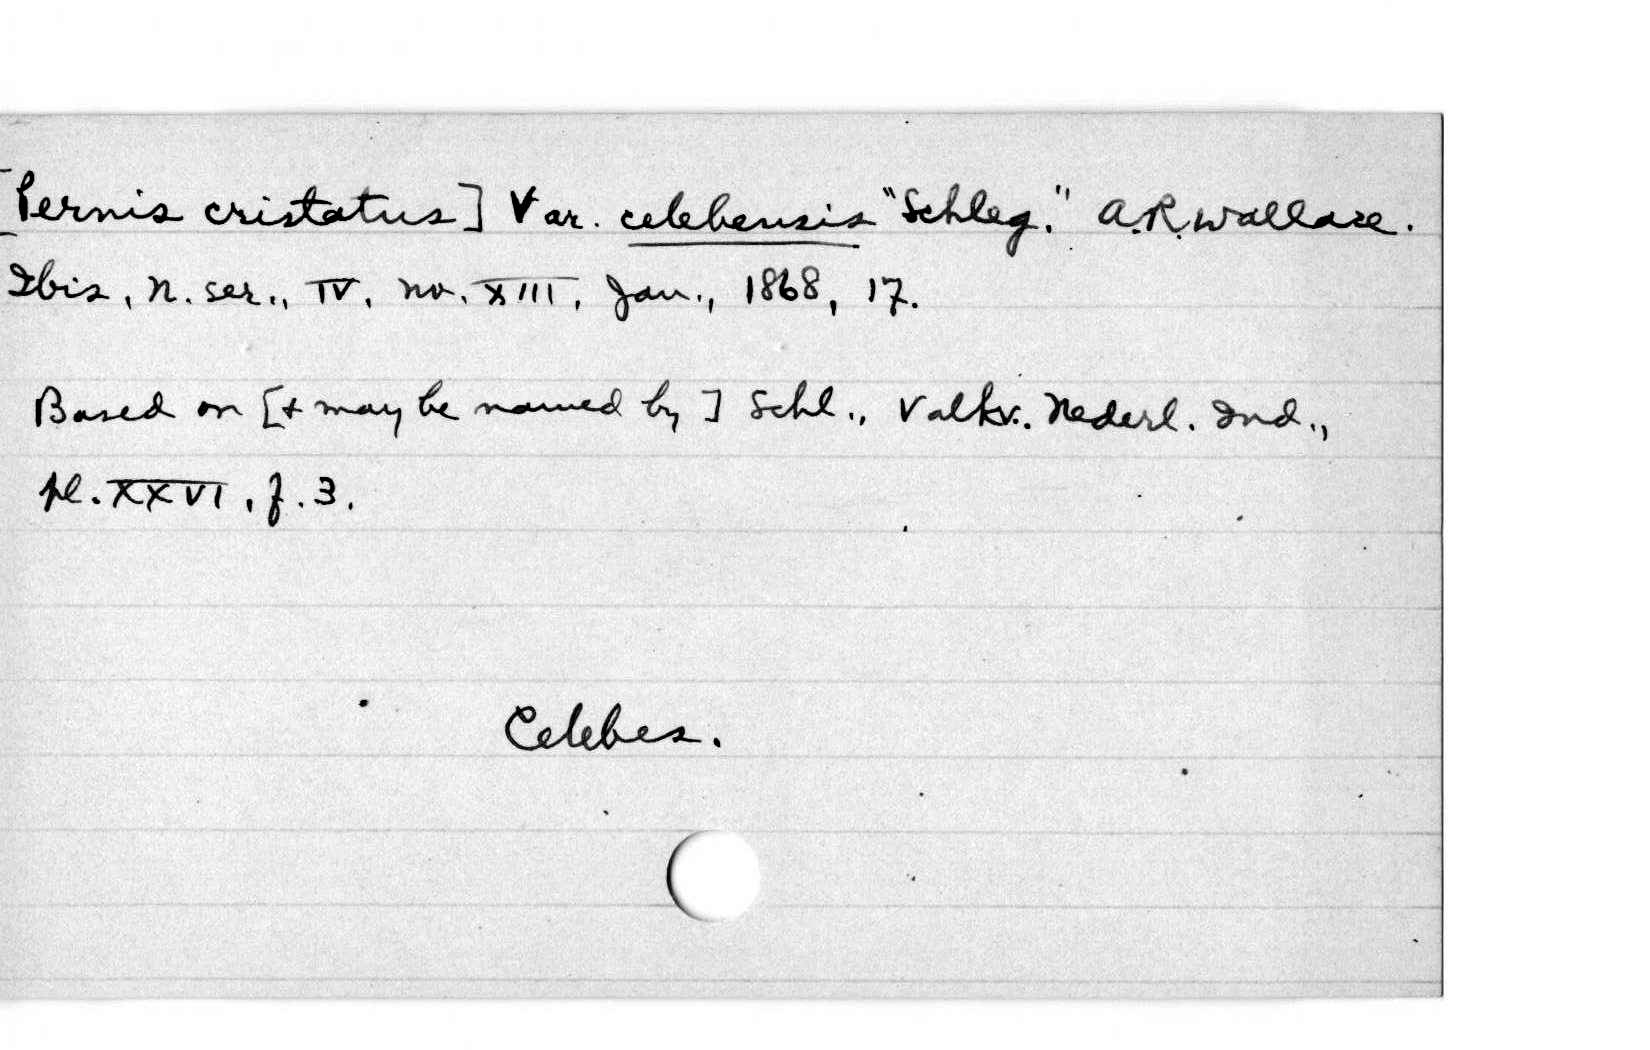 [Pernis cristatus] Var. celebensis "Schleg." A.R. Wallace.
Ibis, n. ser., IV, no. XIII, Jan., 1868, 17.
Based on [+ may be named by] Schl., Valkv. Nederl. Ind.,
pl. XXVI, f. 3.
Celebes.